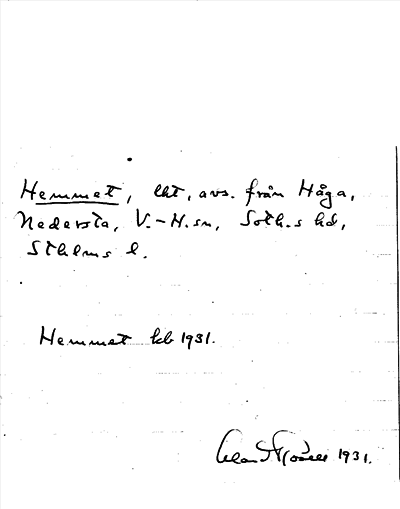 Hemmet, lht, avs. från Håga,
Nedersta, V.-H. sn, Soth.s hd,
Sthlms l.
Hemmet kb 1931.
1931.